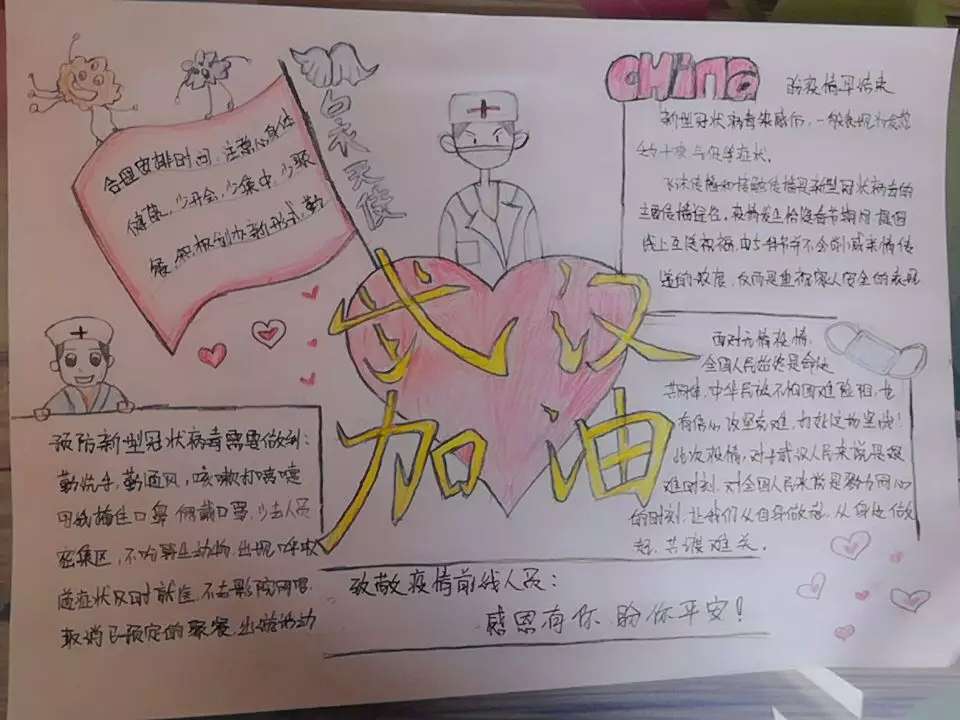 合理安排时间，注意心身体
健康，少开会，少集中，少聚
餐，积极创办新形式，勤
白衣天使
China
盼疫情早结束
新型冠状病毒染感后，一般表现为发热
乏力干咳
等症状。
飞沫传播和接触传播是新型冠状病毒的
主要传播途径。疫情发生恰逢春节期间 提倡
线上互送祝福，
并不会削减亲情传
递的浓度，反而是重视家人安全的表现
武汉
加油
面对无情疫情，
全国人民始终是命运
共同体，中华民族不怕困难险阻，也
有信心攻坚克难，打赢这场坚战！
此次疫情，对于武汉人民来说是艰
难时刻，对全国人民来说是勠力同心
的时刻，让我们从自身做起，从身边做
起，共渡难关。
预防新型冠状病毒需要做到：
勤洗手，勤通风，咳嗽打喷嚏
捂住口鼻 佩戴口罩，少去人员
密集区，不吃野生动物，出现呼吸
道症状及时就医，不去影院网吧，
取消已预定的聚餐，出游活动
致敬疫情前线人员：
感恩有你 盼你平安！